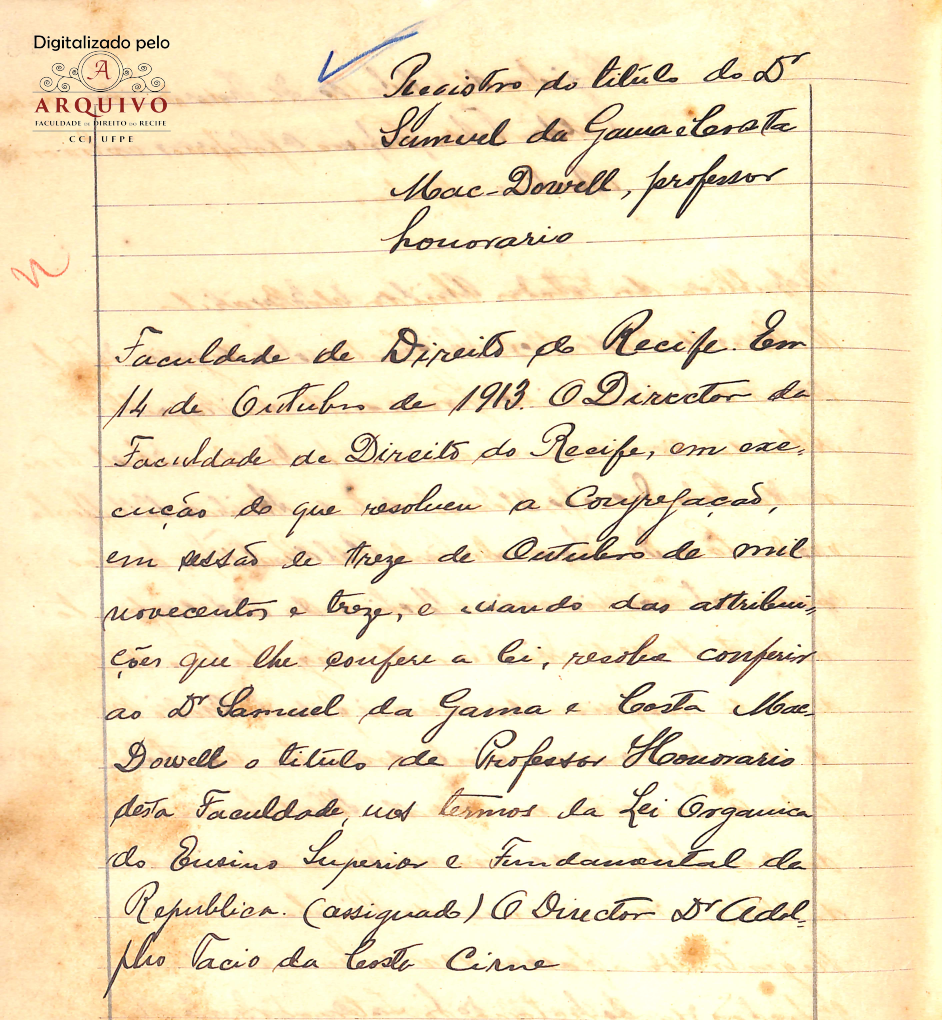 Digitalizado pelo
A
ARQUIVO
FACULDADE DE DIREITO DO RECIFE
CCJ UFPE
Registro do titulo do Dr
Samuel da Gama e Costa
Mac-Dowell, professor
honorario
Faculdade de Direito do Recife. Em
14 de Outubro de 1913. O Director da
Faculdade de Direito do Recife, em exe-
cução do que resolveu a Congregação,
em sessão de treze de Outubro de mil
novecentos e treze, e usando das attribui-
ções que lhe confere a lei, resolve conferir
ao Dr Samuel da Gama e Costa Mac-
Dowell o titulo de Professor Honorario
desta Faculdade, nos termos da Lei Organica
do Ensino Superior e Fundamental da
Republica. (assignado) O Director Dr Adol-
pho Tacio da Costa Cirne